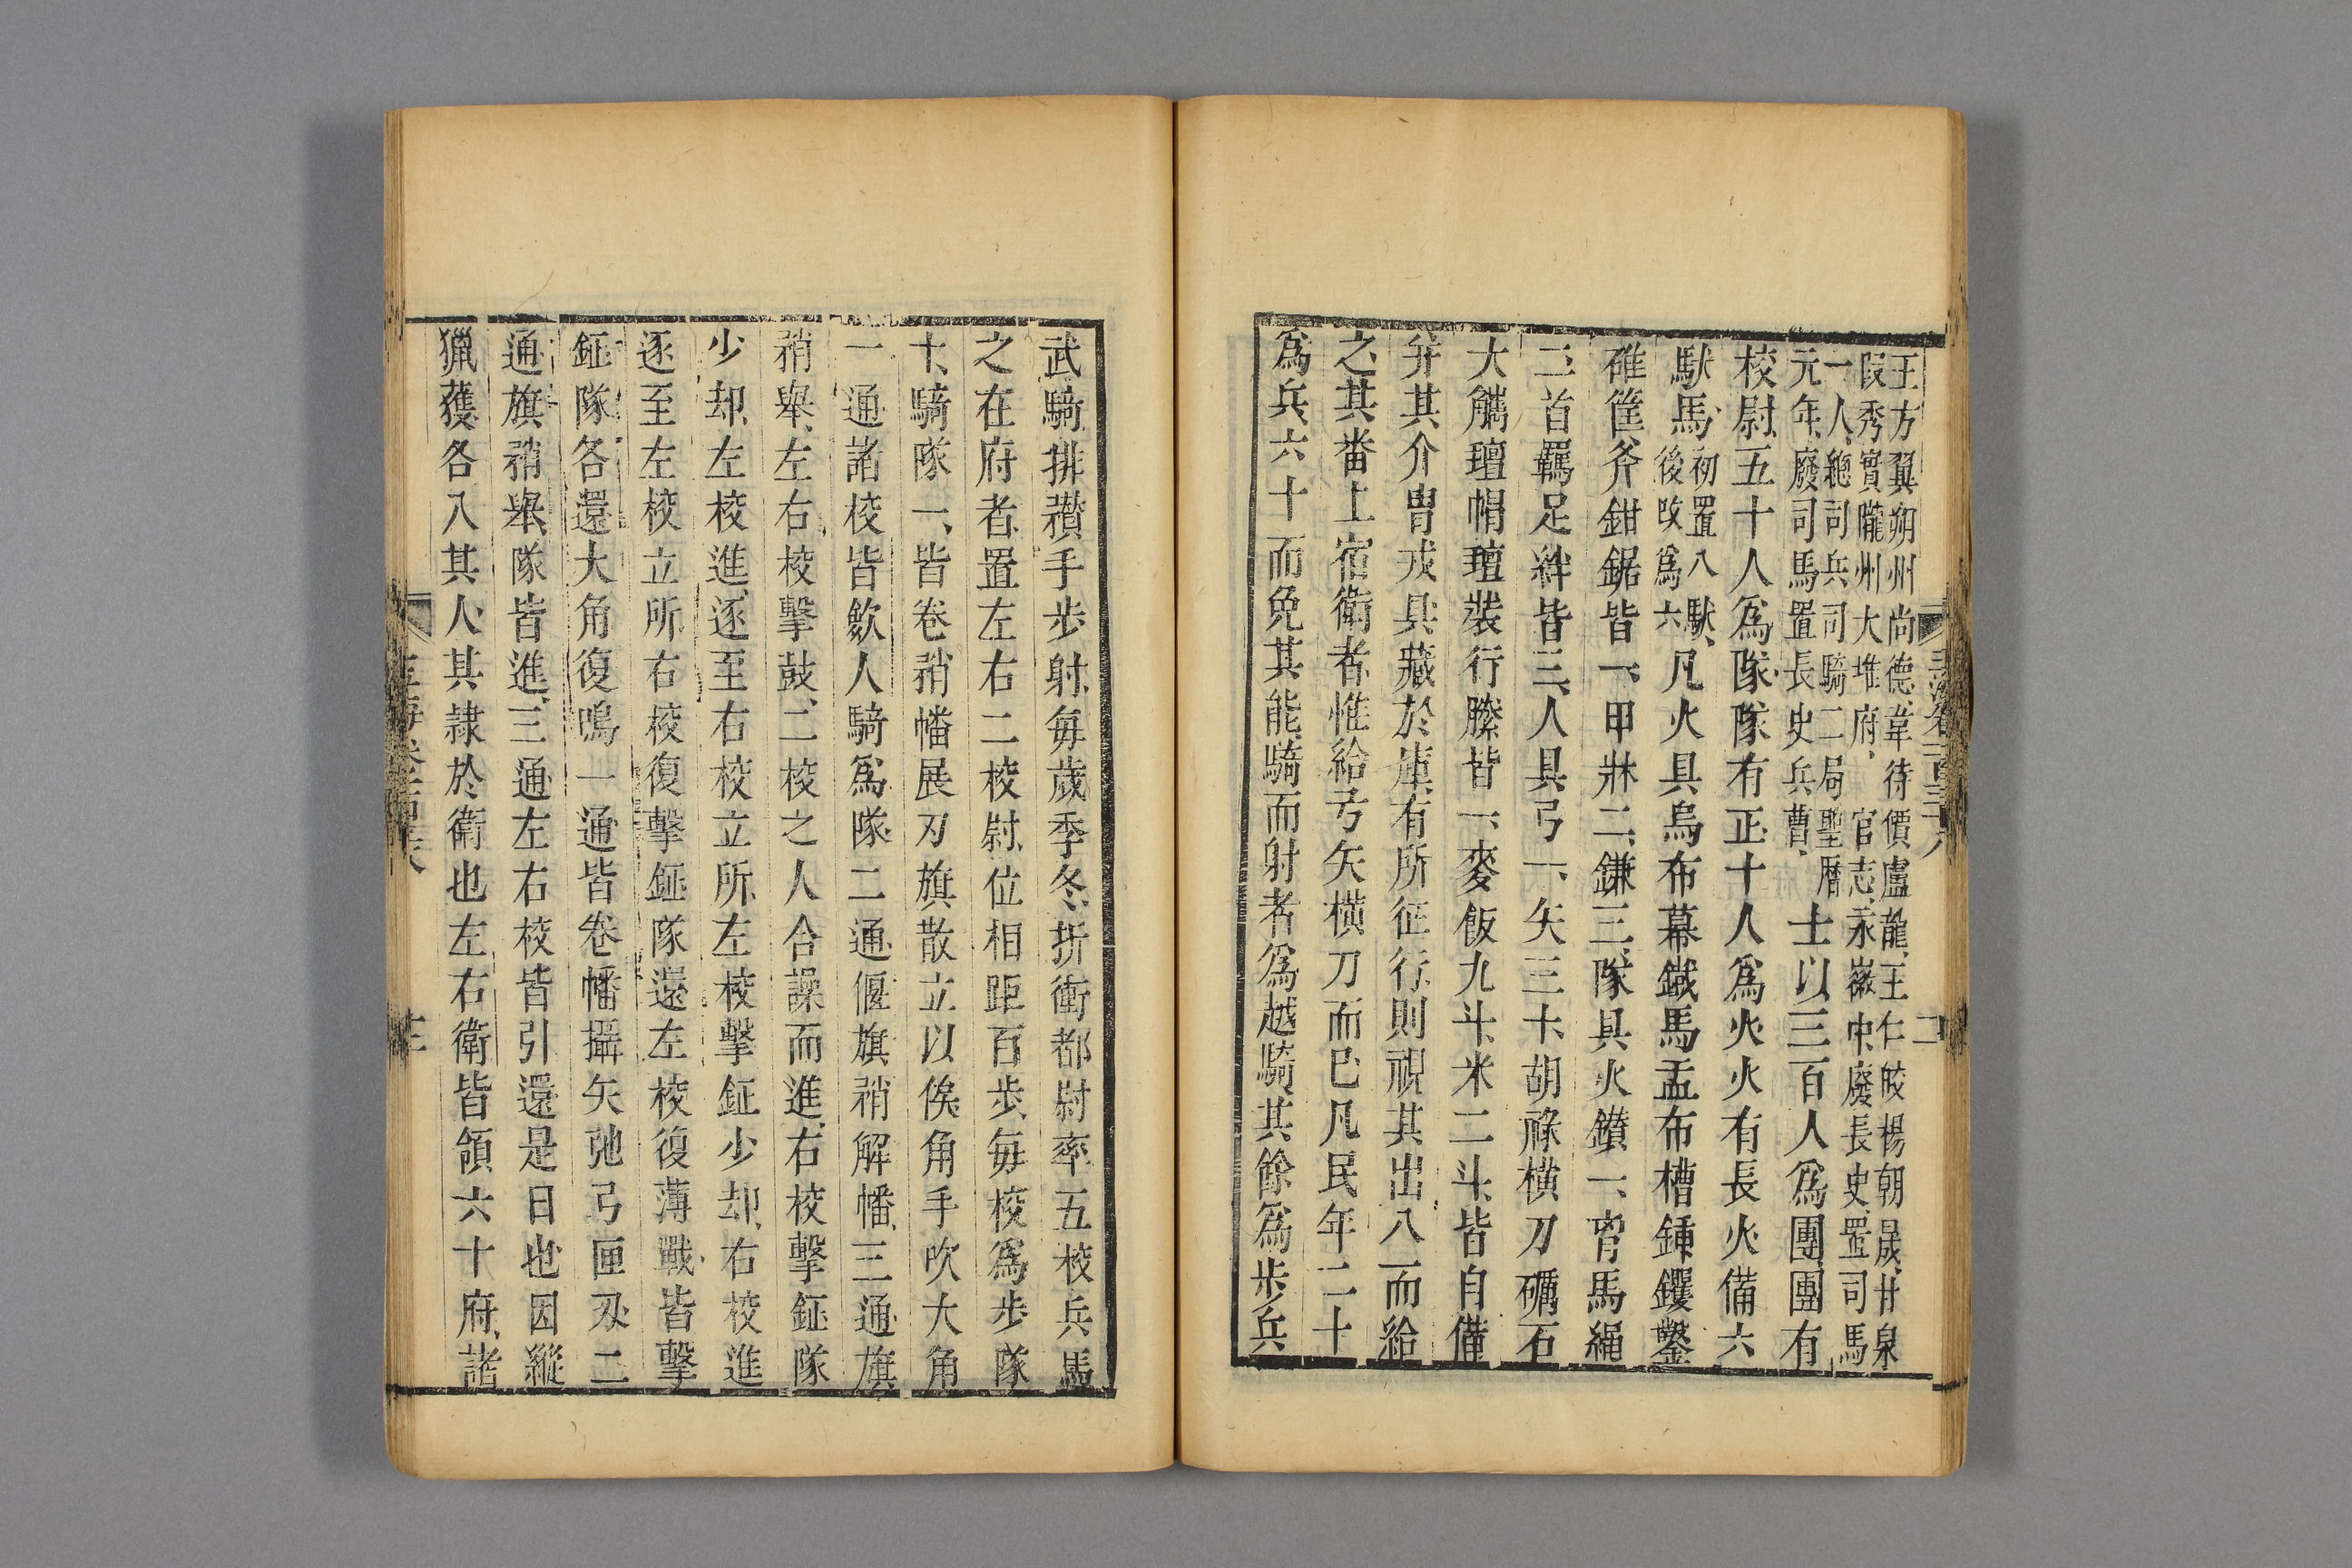 王方翼朔州尚德韋待價盧龍王仁皎楊朝晟甘泉
段秀實隴州大堆府官志永徽中廢長史置司馬
一人總司兵司騎二局聖曆
元年廢司馬置長史兵曹
士以三百人爲團團有
校尉五十人爲隊隊有正十人爲火火有長火備六
馱馬
初置八馱
後改爲六
凡火具烏布幕鐵馬盂布槽鍤钁鑿
碓筐斧鉗鋸皆一甲牀二鎌二隊具火鑽一胷馬繩
一首羈足絆皆三人具弓一矢三十胡祿橫刀礪石
大觿氊帽氊裝行縢皆一麥飯九斗米二斗皆自備
并其介胄戎具藏於庫有所征行則視其出入而給
之其番上宿衛者惟給弓矢橫刀而巳凡民年二十
爲兵六十而免其能騎而射者爲越騎其餘爲步兵
武騎排䂎手步射每歲季冬折衝都尉率五校兵馬
之在府者置左右二校尉位相距百步每校爲步隊
十騎隊一皆卷矟幡展刃旗散立以俟角手吹大角
一通諸校皆斂人騎爲隊二通偃旗矟解幡三通旗
矟舉左右校擊鼓二校之人合譟而進右校擊鉦隊
少却左校進逐至右校立所左校擊鉦少却右校進
逐至左校立所右校復擊鉦隊還左校復薄戰皆擊
鉦隊各還大角復鳴一通皆卷幡攝矢弛弓匣刃二
通旗矟舉隊皆進三通左右校皆引還是日也因縱
獵獲各入其人其隷於衛也左右衛皆領六十府諸